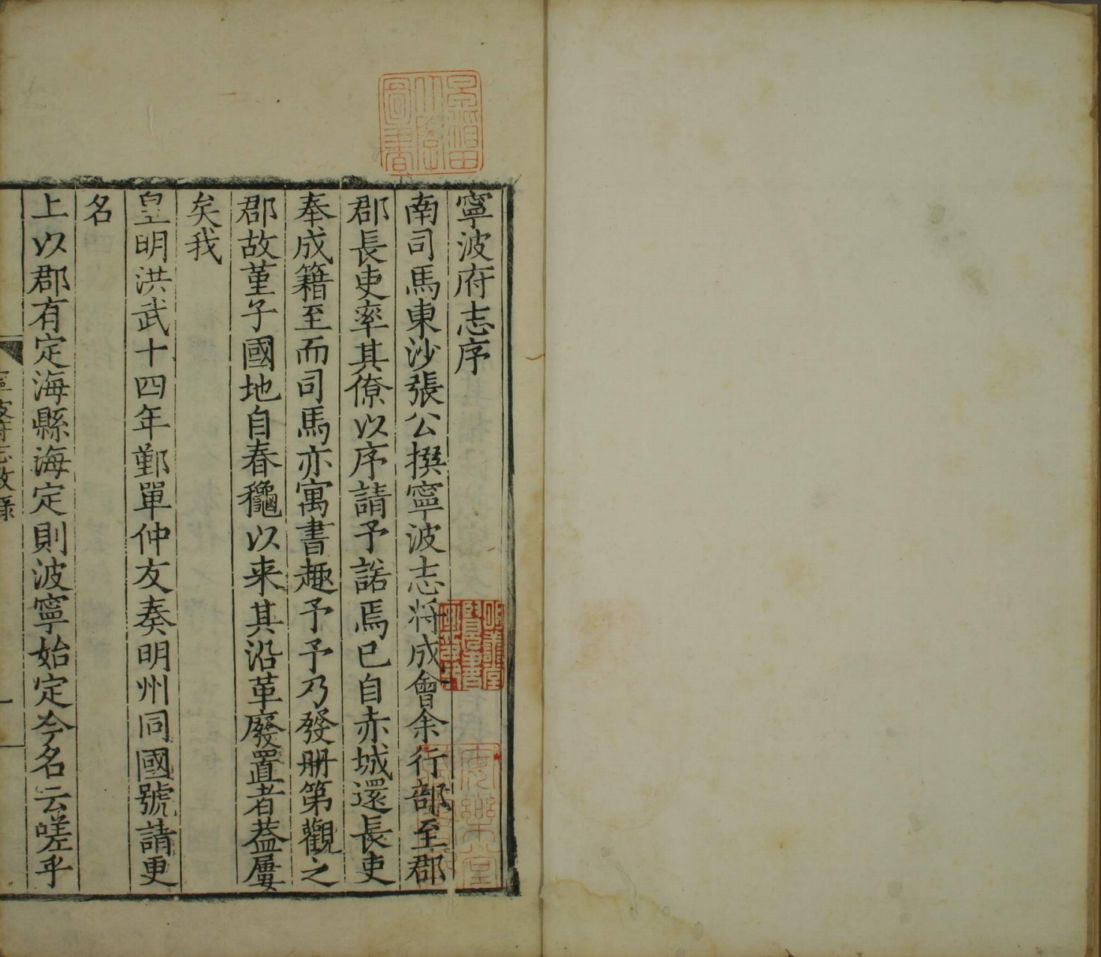 寧波府志序
南司馬東沙張公撰寧波志将成會余行部至郡
郡長吏率其僚以序請予諾焉已自赤城還長吏
奉成籍至而司馬亦寓書趣予予乃發册第觀之
郡故堇子國地自春龝以来其沿革廢置者葢屢
矣我
皇明洪武十四年鄞單仲友奏明州同國號請更
名
上以郡有定海縣海定則波寧始定今名云嗟乎